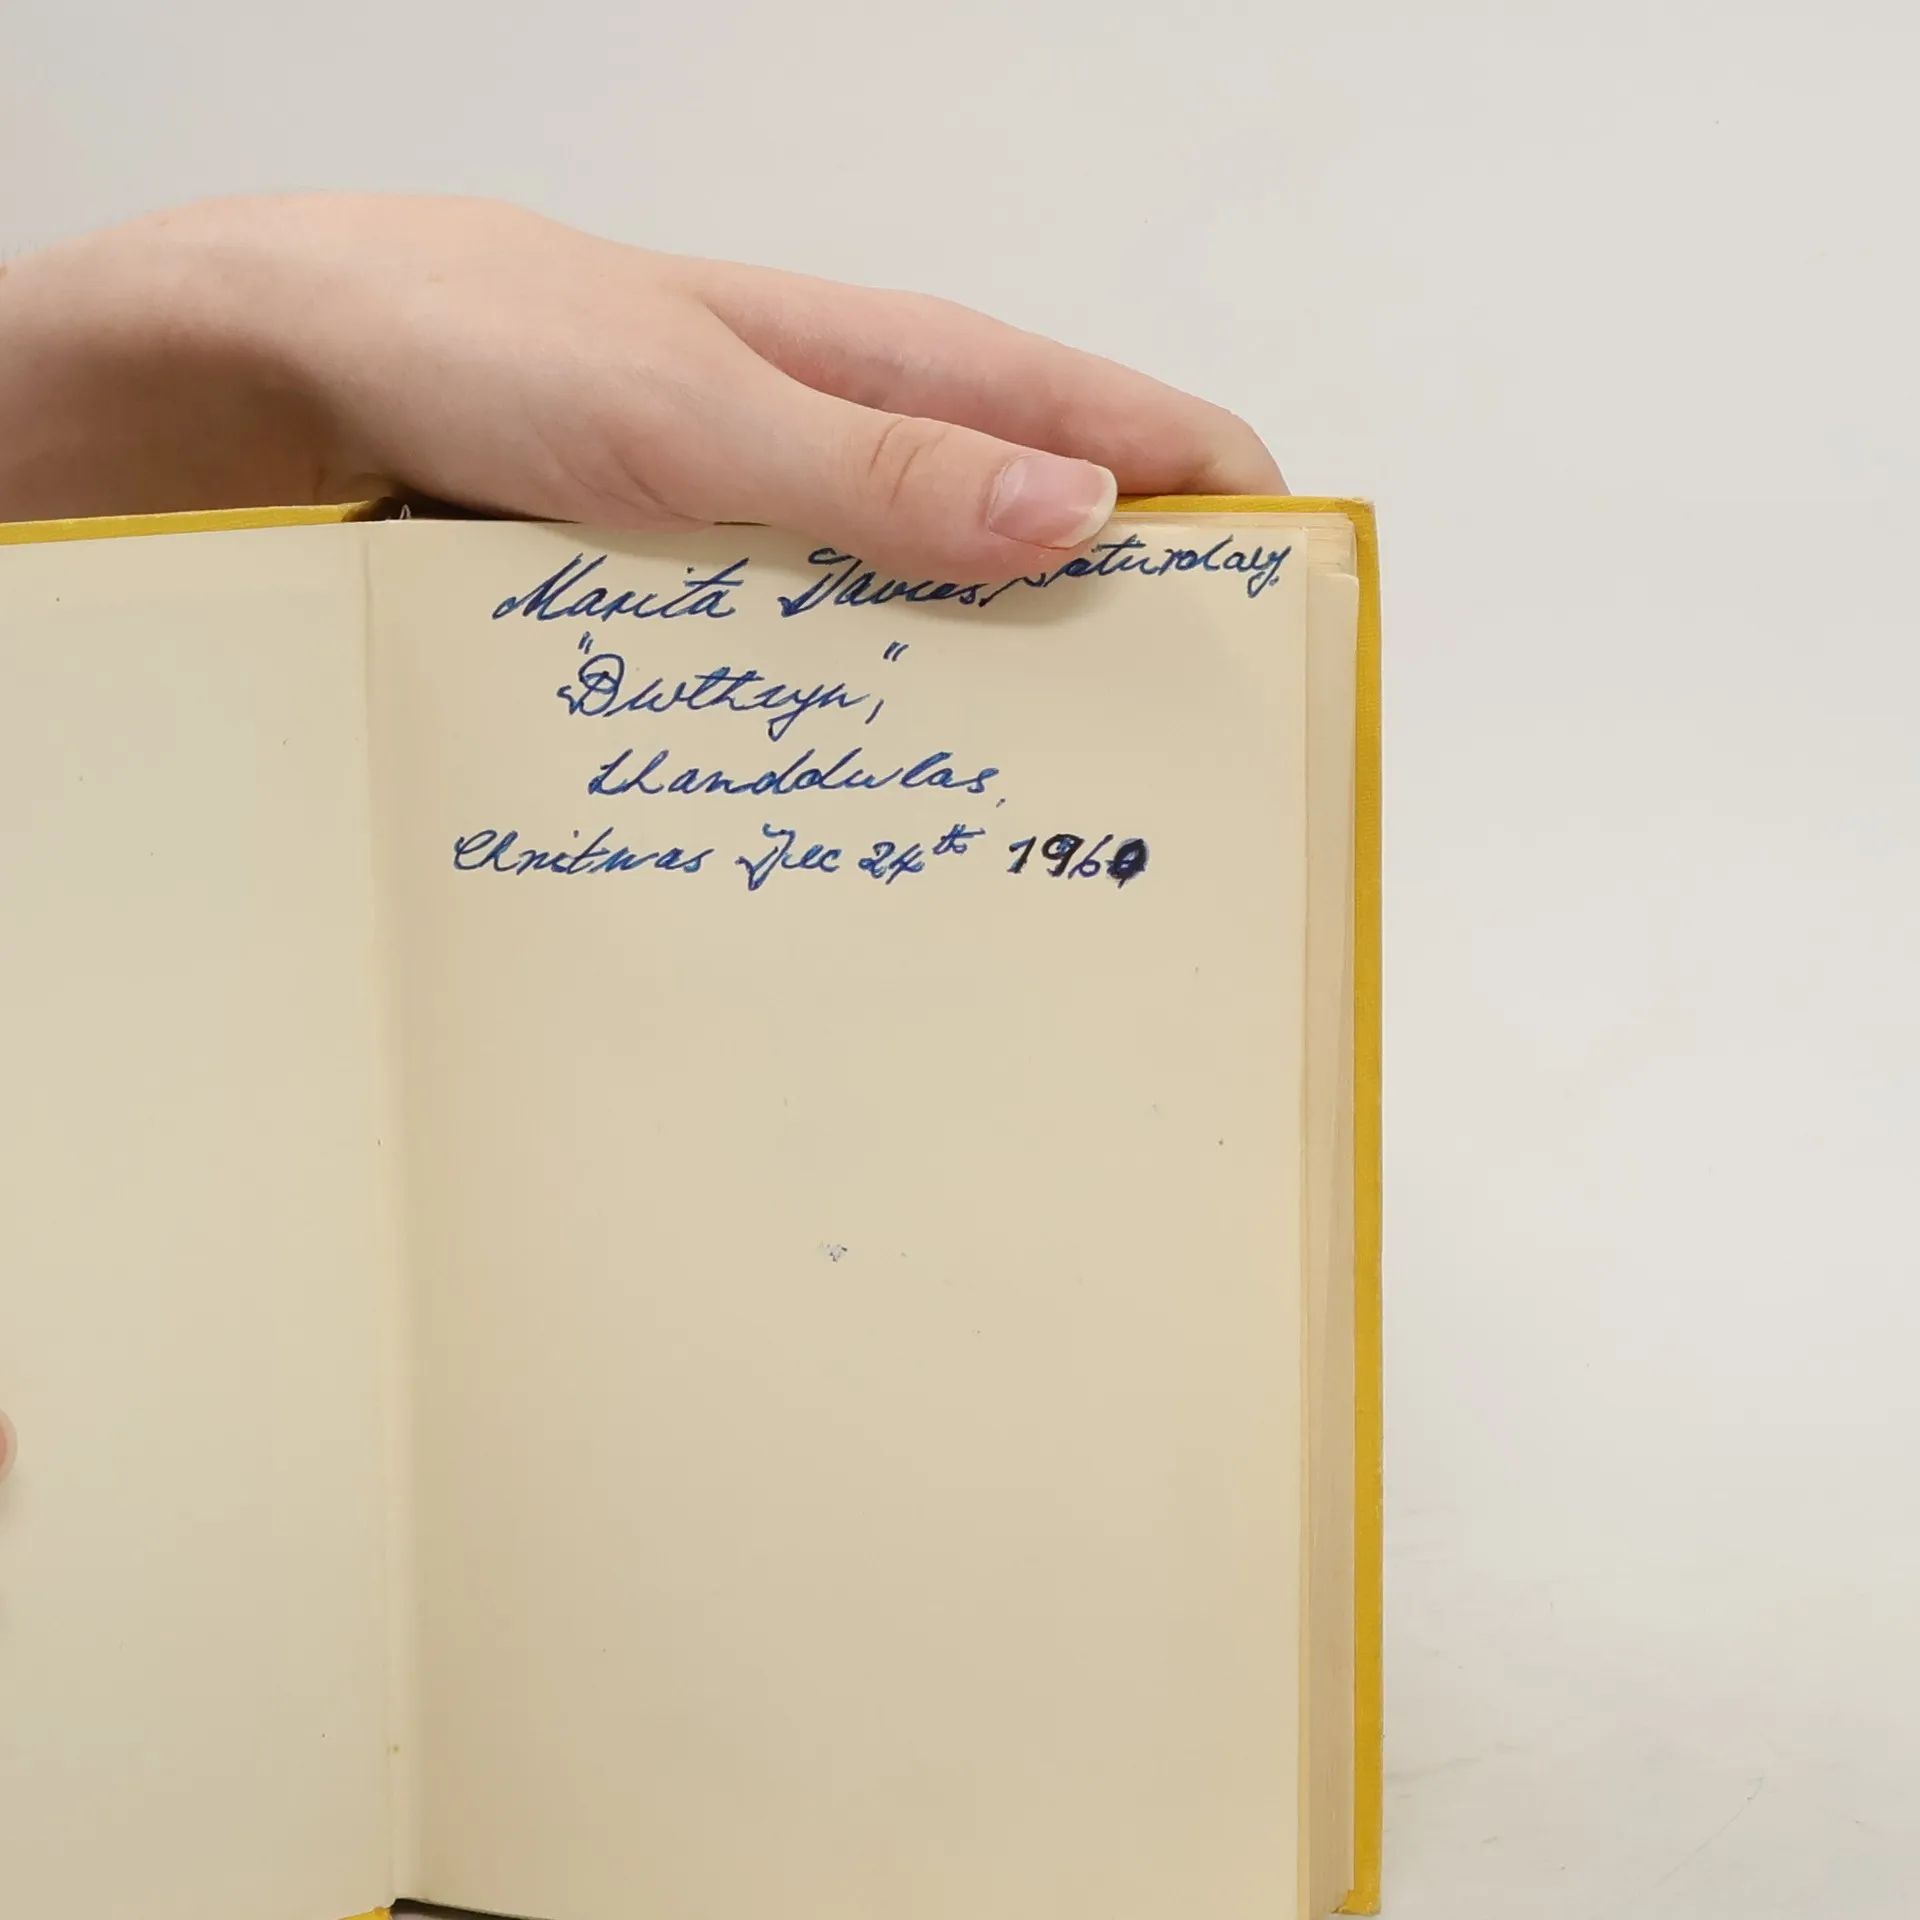 Marita Davies, Saturday,
"Bwthyn,"
Llanddulas,
Christmas Dec 24th 1960